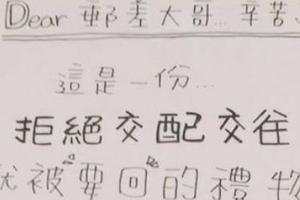 Dear 郵差大哥... 辛苦
這是一份...
拒絕交配交往
被要回的禮物